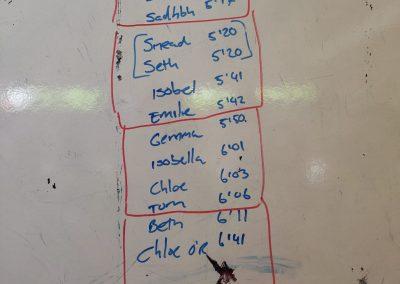 Sadhbh
Sinead 5'20
Seth 5'20
Isobel 5'41
Emilie 5'42
Gemma 5'50
Isobella 6'01
Chloe 6'03
Tom 6'06
Beth 6'11
Chloe O'R 6'41